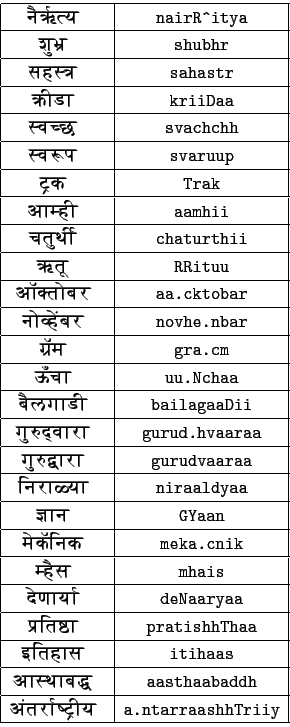 नैर्ऋत्य nairR^itya
शुभ्र shubhr
सहस्त्र sahastr
क्रीडा kriiDaa
स्वच्छ svachchh
स्वरूप svaruup
ट्रक Trak
आम्ही aamhii
चतुर्थी chaturthii
ऋतू RRituu
ऑक्तोबर aa.cktobar
नोव्हेंबर novhe.nbar
ग्रॅम gra.cm
ऊँचा uu.Nchaa
बैलगाडी bailagaaDii
गुरुद्‌वारा gurud.hvaaraa
गुरुद्वारा gurudvaaraa
निराळ्या niraaldyaa
ज्ञान GYaan
मेकॅनिक meka.cnik
म्हैस mhais
देणार्या deNaaryaa
प्रतिष्ठा pratishhThaa
इतिहास itihaas
आस्थाबद्ध aasthaabaddh
अंतर्राष्ट्रीय a.ntarraashhTriiy